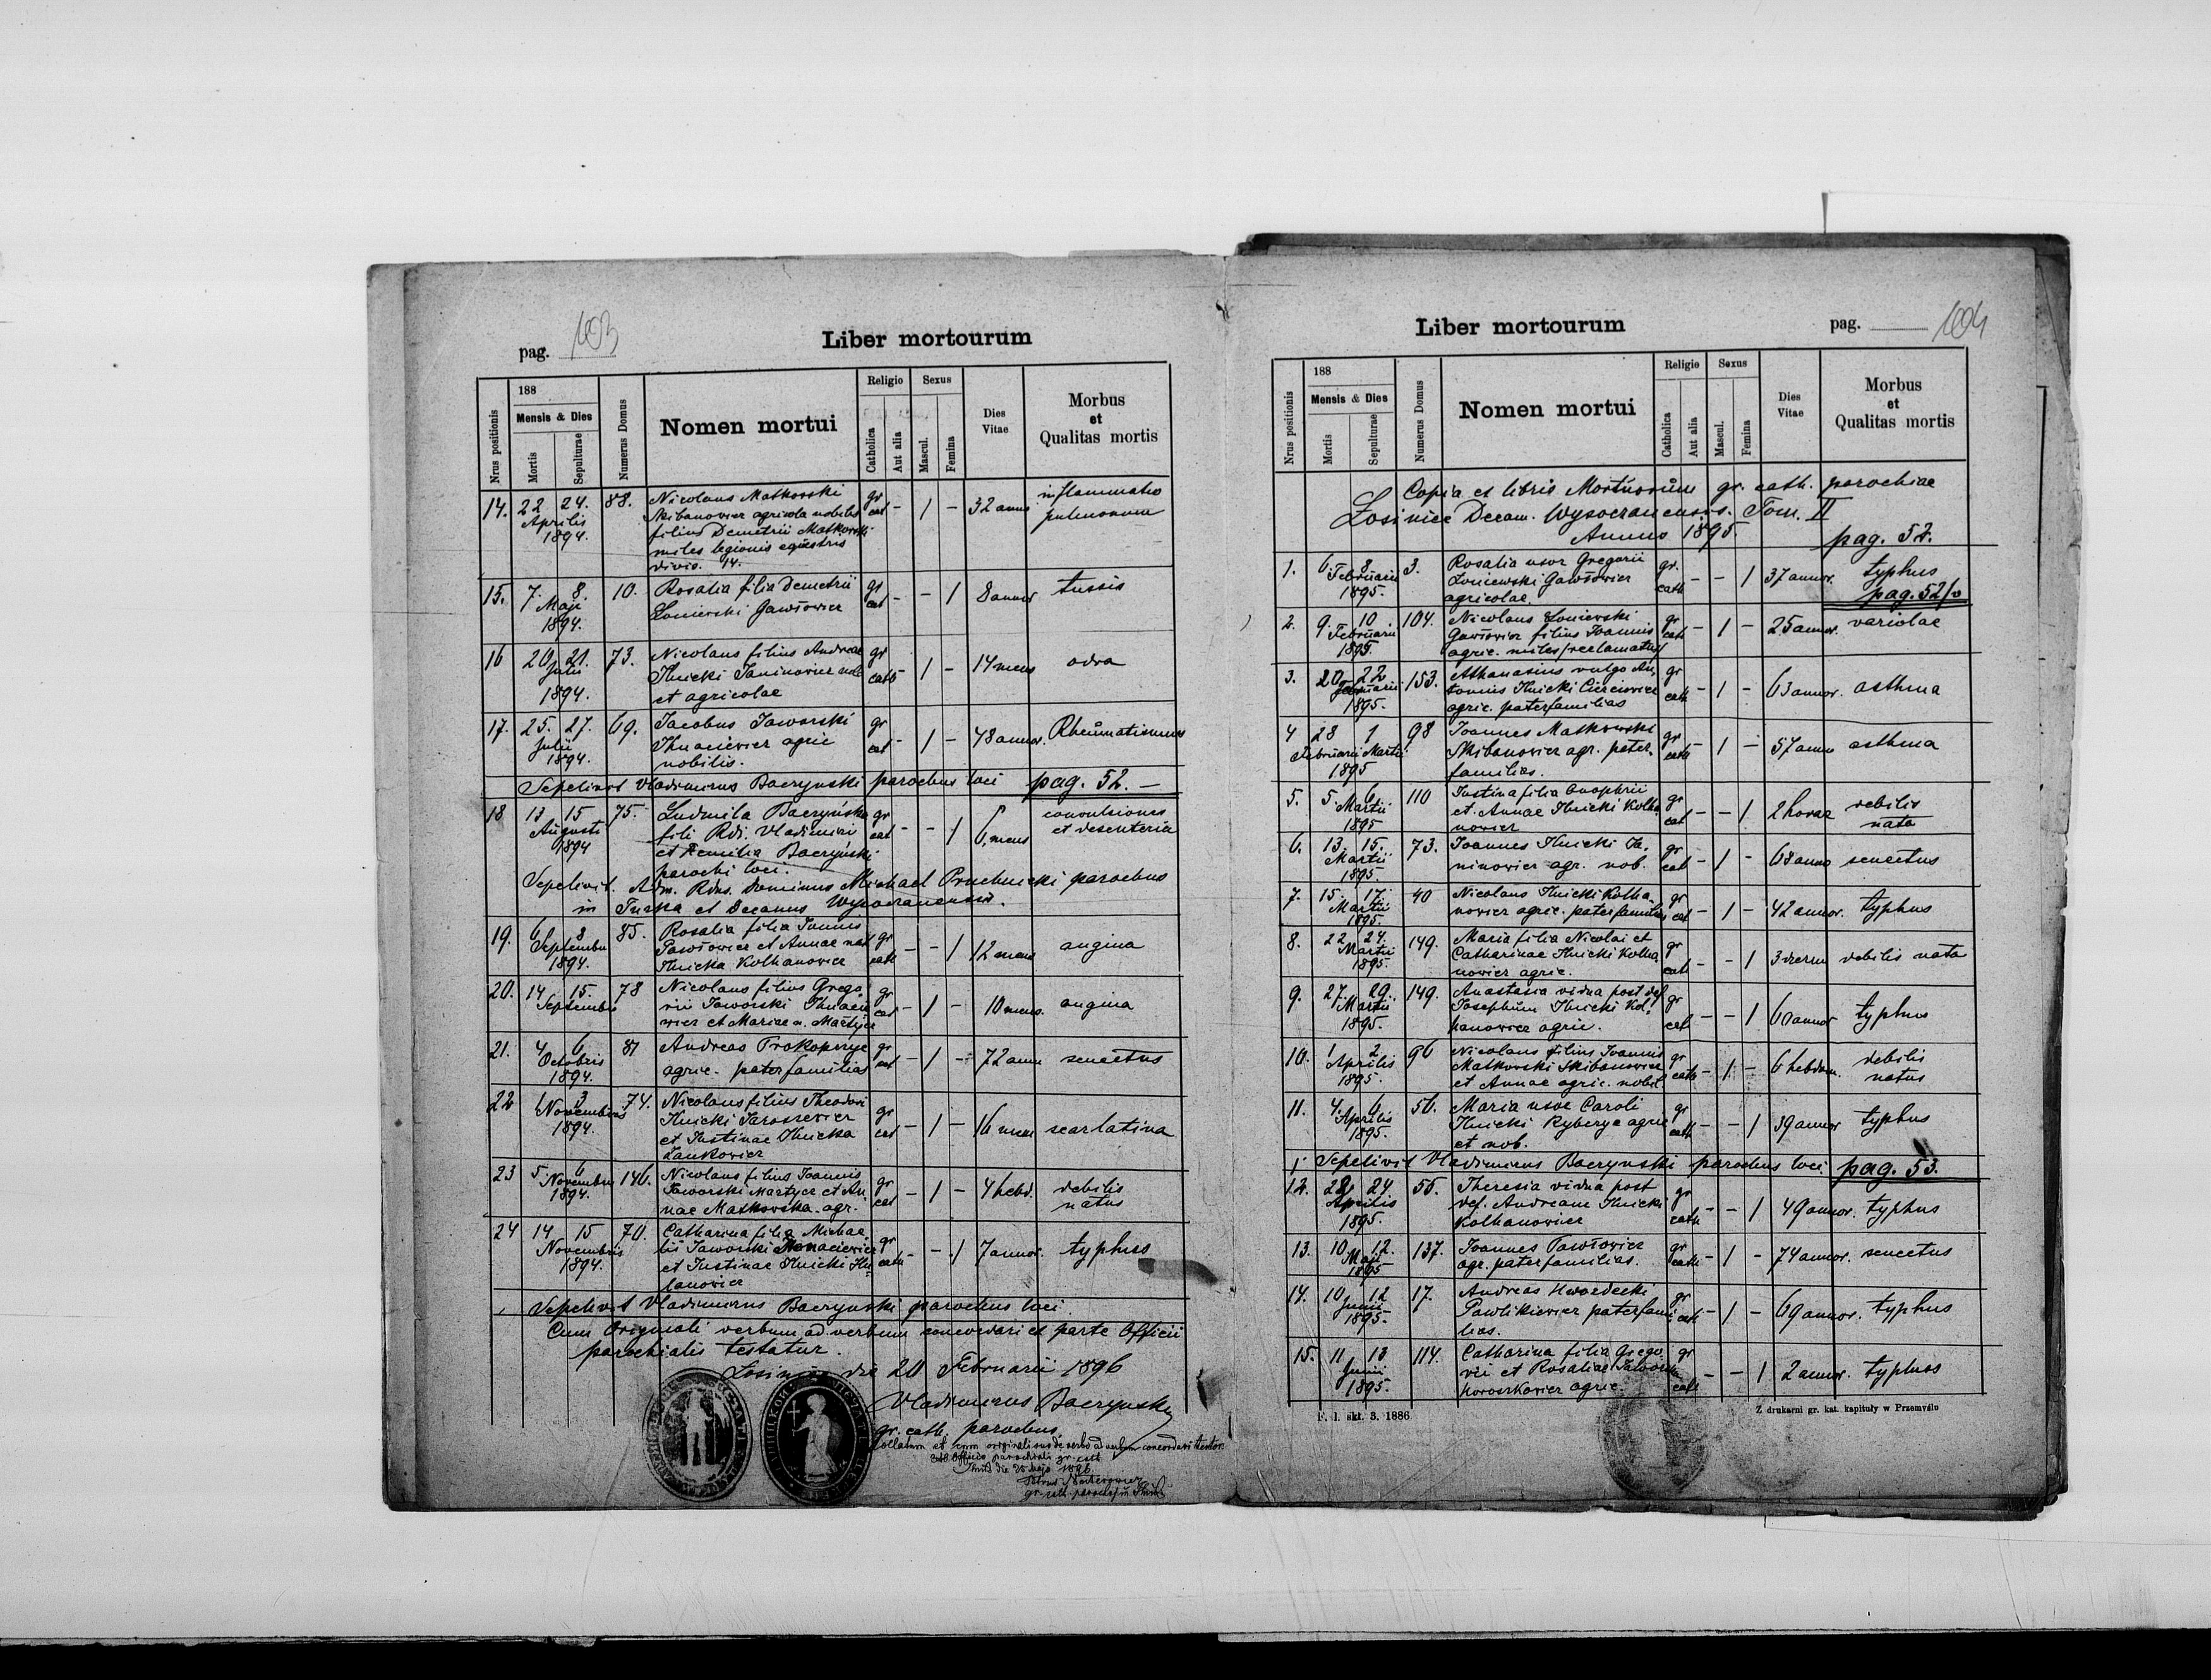 pag. 103
Liber mortourum
Nrus positionis
188
Mensis & Dies
Mortis
Sepulturae
Numerus Domus
Nomen mortui
Religio
Catholica
Aut alia
Sexus
Mascul.
Femina
Dies Vitae
Morbus
et
Qualitas mortis
14. 22 24. 88. Nicolaus Matkowski gr - 1 - 32 annor inflammatio
Aprilis Skibanowicz agricola nobilis cat pulmonum
1894. filius Demetrii Matkowski
miles legionis equestris
divis. 14.
15. 7. 8 10. Rosalia filia Demetrii gr - - 1 8 annor tussis
Maji Łoniewski Gawłowicz cat
1894.
16 20 21. 73. Nicolaus filius Andreae gr - 1 - 14 mens odra
Julii Ilnicki Janinowicz nob cath
1894. et agricolae
17. 25. 27. 69. Jacobus Jaworski gr - 1 - 48 annor. Rheumatismus
Julii Ihnaciewicz agric cat
1894. nobilis.
Sepelivit Vladimirus Baczynski parochus loci pag. 52. —
18 13 15 75. Ludmila Baczyńska gr - - 1 6 mens convulsiones
Augusti fili Rdi. Vladimiri cat et desenteria
1894 et Aemilia Baczyński
parochi loci.
Sepelivit. Adm. Rdus. Dominus Michael Pruchnicki parochus
in Turka et Decanus Wysocranensis.
19. 6 8 85. Rosalia filia Joannis gr - - 1 12 mens angina
Septembr Pawłowicz et Annae nat cath
1894. Ilnicka Kolhanowicz
20. 14 15. 78 Nicolaus filius Grego gr - 1 - 10 mens. angina
Septembr rii Jaworski Ihnacie cat
wicz et Mariae n. Martycz
21. 4 6 81 Andreas Prokopczyc gr - 1 - 72 annr senectus
Octobris agric. paterfamilias cat
1894.
22 1 3 74. Nicolaus filius Theodori gr - 1 - 16 mens scarlatina
Novembris Ilnicki Jaroszewicz cat
1894. et Justinae Ilnicka
Łankowicz
23 5. 6 146. Nicolaus filius Joannis gr - 1 - 4 hebd. debilis
Novembr Jaworski Martycz et An cat natus
1894. nae Matkowska agr.
24 14 15 70. Catharina filia Michae gr - - 1 7 annor. typhus
Novembris lis Jaworski Ihnaciewicz cath
1894. et Justinae Ilnicki Hu
lanowicz
Sepelivit Vladimirus Baczynski parochus loci.
Cum Originali verbum ad verbum concordari et parte Officii
parochialis testatur.
Losiniec die 20 Februarii 1896
Vladimirus Baczynski
gr. cath. parochus
Collatum et cum originali suo de verbo ad verbum concordari testor.
Ab Officio parochiali gr. cath.
Ilnik die 25 Maji 1896.
gr. cath. parochus in Ilnik
Liber mortourum
pag. 104
Nrus positionis
188
Mensis & Dies
Mortis
Sepulturae
Numerus Domus
Nomen mortui
Religio
Catholica
Aut alia
Sexus
Mascul.
Femina
Dies Vitae
Morbus
et
Qualitas mortis
Copia et libris Mortuorum gr. cath. parochiae
Losiniec Decan. Wysocranensis. Tom. II
Anno 1895. pag. 52.
1. 6 8. 3. Rosalia uxor Gregorii gr. - - 1 37 annor. typhus
Februarii Łoniewski Gawłowicz cath pag. 52/v
1895. agricolae.
2. 9. 10. 104. Nicolaus Łoniewski gr - 1 - 25 annor. variolae
Februarii Gawłowicz filius Joannis cath
1895. agric. miles (reclamatus)
3. 20 22 153. Athanasius vulgo An gr - 1 - 63 annor. asthma
Februarii tonius Ilnicki Cierciewicz cath
1895. agric. paterfamilias
4 28 1 98 Joannes Matkowski gr - 1 - 57 annor asthma
Februarii Martii Skibanowicz agr. pater. cath
1895 familias.
5. 5 6 110 Justina filia Onophrii gr - - 1 2 horae debilis
Martii et Annae Ilnicki Kolha cat nata
1895 nowicz
6. 13 15. 73. Joannes Ilnicki Ja, gr - 1 - 68 anno senectus
Martii ninowicz agr. nob. cat
1895.
7. 15 17. 40 Nicolaus Ilnicki Kolha gr - 1 - 42 annor. typhus
Martii nowicz agric. paterfamilias cat
1895.
8. 22 24. 149. Maria filia Nicolai et gr - - 1 3 dierum debilis nata
Martii Catharinae Ilnicki Kolha cath
1895. nowicz agric.
9. 27. 29. 149. Anastasia vidua post def gr - - 1 60 annor typhus
Martii Josephum Ilnicki Kol, cath
1895. hanowicz agric.
10. 1 2 96 Nicolaus filius Joannis gr - 1 - 6 hebdom. debilis
Aprilis Matkowski Skibanowicz cath natus
1895. et Annae agric. nobil
11. 4. 6 56. Maria uxor Caroli gr - - 1 39 annor typhus
Aprilis Ilnicki Ryberyc agric cath
1895. et nob.
Sepelivit Vladimirus Baczynski parochus loci. pag. 53.
12. 22 24 55. Theresia vidua post gr - - 1 49 annor. typhus
Aprilis def. Andream Ilnicki cath
1895. Kolhanowicz
13. 10 12. 137. Joannes Pawłowicz gr - 1 - 74 annor. senectus
Maji agr. paterfamilias. cath
1895
14. 10 12 17. Andreas Hwozdecki gr - 1 - 69 annor. typhus
Junii Pawlikiewicz paterfami cath
1895. lias.
15. 11 13 114. Catharina filia Grego- gr - - 1 2 annor. typhus
Junii rii et Rosaliae Jaworski cath
1895. Horoszkowicz agric.
F. l. skł. 3. 1886
Z drukarni gr. kat. kapituły w Przemyślu